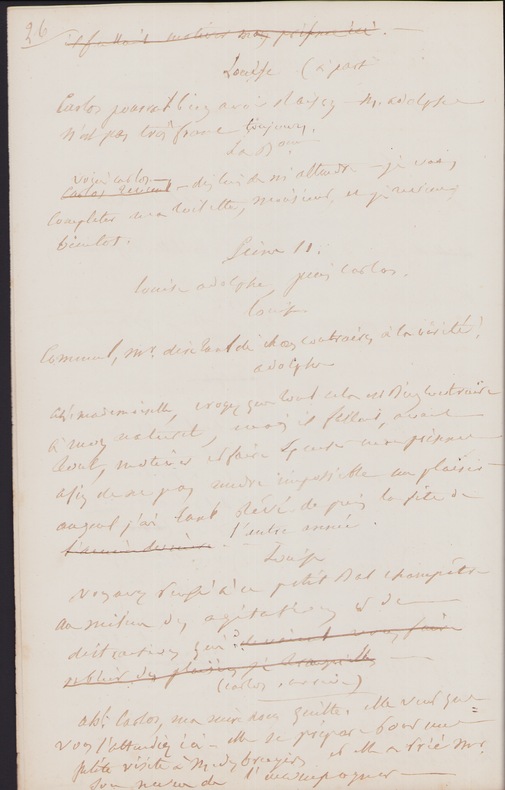 26
il fallait motiver ma présence. —
Louise (à part
Carlos pourrait bien avoir raison — M. adolphe
n'est pas très franc toujours.
La Bonne
voici Carlos —
Carlos revient — dis lui de m'attendre — je vais
completer ma toilette, monsieur, et je reviens
bientot.
Scène 11.
Louise adolphe puis Carlos.
Louise
Comment, Mr. dire tant de choses contraires à la vérité!
adolphe
ah! mademoiselle, croyez que tout cela est bien contraire
à mon naturel, mais il fallait, avant
tout, motiver et faire ma présence
afin de ne pas rendre impossible un plaisir
auquel j'ai tant rêvé depuis la fête de
l'année dernière l'autre année.
Louise
Vous avez rêvé à ce petit Bal champêtre
au milieu des agitations et de
distractions qui devaient vous faire
oublier des plaisirs si tranquilles —
(Carlos arrive)
ah! Carlos, ma mère nous quitte. elle veut que
vous l'attendiez ici — elle se prépare pour une
petite visite à et elle a prié Mr.
de l'accompagner —